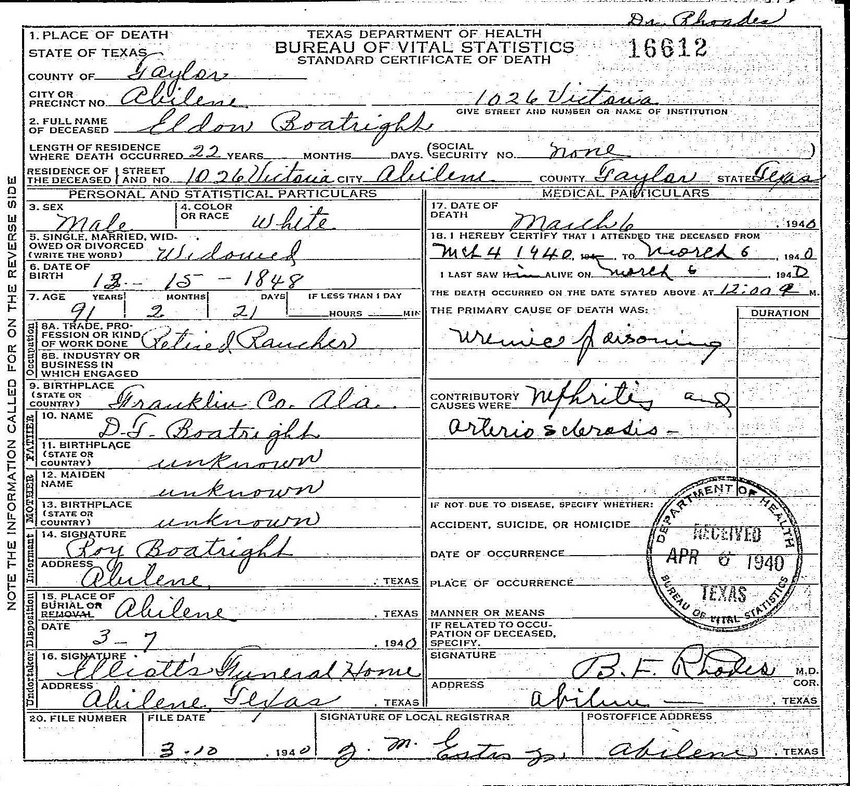 Dr. Rhoades
1. PLACE OF DEATH
STATE OF TEXAS
TEXAS DEPARTMENT OF HEALTH
BUREAU OF VITAL STATISTICS
STANDARD CERTIFICATE OF DEATH
16612
COUNTY OF Taylor
CITY OR PRECINCT NO. Abilene 1026 Victoria
GIVE STREET AND NUMBER OR NAME OF INSTITUTION
2. FULL NAME OF DECEASED Eldon Boatright
LENGTH OF RESIDENCE WHERE DEATH OCCURRED 22 YEARS MONTHS DAYS. (SOCIAL SECURITY NO. none )
RESIDENCE OF THE DECEASED { STREET AND NO. 1026 Victoria CITY Abilene COUNTY Taylor STATE Texas
NOTE THE INFORMATION CALLED FOR ON THE REVERSE SIDE
PERSONAL AND STATISTICAL PARTICULARS
3. SEX Male
4. COLOR OR RACE White
5. SINGLE, MARRIED, WIDOWED OR DIVORCED (WRITE THE WORD) Widowed
6. DATE OF BIRTH 12 - 15 - 1848
7. AGE 91 YEARS 2 MONTHS 21 DAYS IF LESS THAN 1 DAY HOURS MIN
Occupation
8A. TRADE, PROFESSION OR KIND OF WORK DONE Retired Rancher
8B. INDUSTRY OR BUSINESS IN WHICH ENGAGED
9. BIRTHPLACE (STATE OR COUNTRY) Franklin Co. Ala.
FATHER
10. NAME D.T. Boatright
11. BIRTHPLACE (STATE OR COUNTRY) unknown
MOTHER
12. MAIDEN NAME unknown
13. BIRTHPLACE (STATE OR COUNTRY) unknown
Informant
14. SIGNATURE Roy Boatright
ADDRESS Abilene, . TEXAS
Disposition
15. PLACE OF BURIAL OR REMOVAL Abilene . TEXAS
DATE 3 - 7 . 1940
Undertaker
16. SIGNATURE Elliott's Funeral Home
ADDRESS Abilene, Texas . TEXAS
MEDICAL PARTICULARS
17. DATE OF DEATH March 6 . 1940
18. I HEREBY CERTIFY THAT I ATTENDED THE DECEASED FROM
Mch 4 1940, 194 TO March 6 . 1940
I LAST SAW him ALIVE ON March 6 194 0
THE DEATH OCCURRED ON THE DATE STATED ABOVE AT 12:00 M.
THE PRIMARY CAUSE OF DEATH WAS: DURATION
uremic poisoning
CONTRIBUTORY CAUSES WERE Nephritis and
arterio sclerosis -
IF NOT DUE TO DISEASE, SPECIFY WHETHER:
ACCIDENT, SUICIDE, OR HOMICIDE
DATE OF OCCURRENCE
PLACE OF OCCURRENCE
MANNER OR MEANS
IF RELATED TO OCCUPATION OF DECEASED, SPECIFY.
DEPARTMENT OF HEALTH
RECEIVED
APR 6 1940
TEXAS
BUREAU OF VITAL STATISTICS
SIGNATURE B. F. Rhodes M.D. COR.
ADDRESS Abilene . TEXAS
20. FILE NUMBER
FILE DATE 3-10 . 1940
SIGNATURE OF LOCAL REGISTRAR J. M. Estes Jr.
POSTOFFICE ADDRESS Abilene . TEXAS